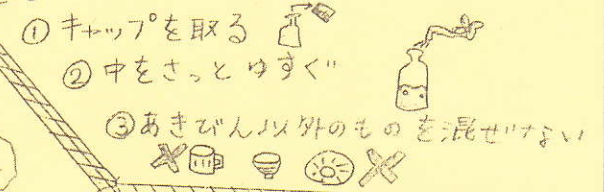 ①キャップを取る
②中をさっとゆすぐ
③あきびん以外のものを混ぜない